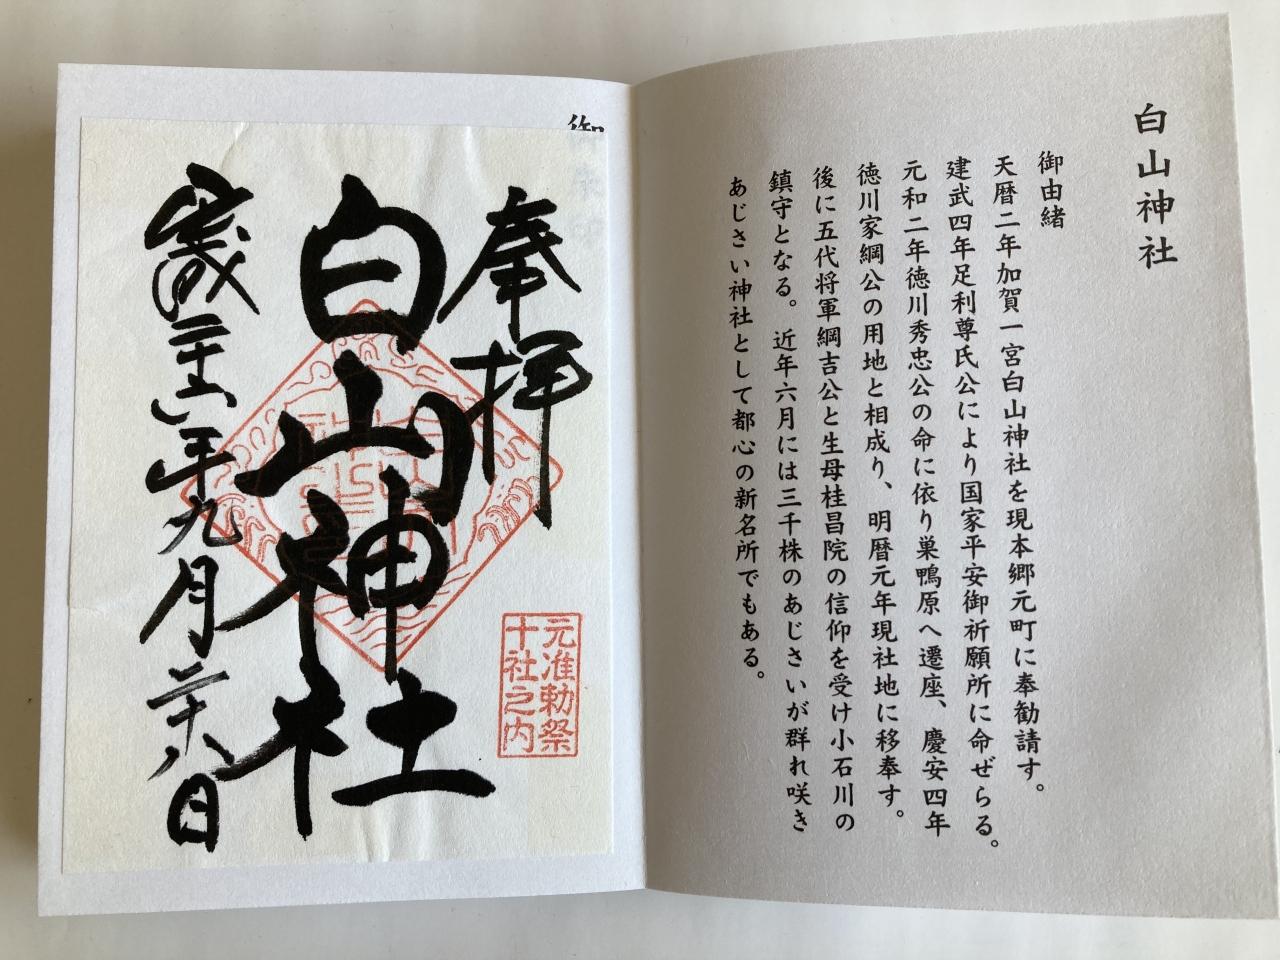 白山神社
御由緒
天暦二年加賀一宮白山神社を現本郷元町に奉勧請す。
建武四年足利尊氏公により国家平安御祈願所に命ぜらる。
元和二年徳川秀忠公の命に依り巣鴨原へ遷座、慶安四年
徳川家綱公の用地と相成り、明暦元年現社地に移奉す。
後に五代将軍綱吉公と生母桂昌院の信仰を受け小石川の
鎮守となる。近年六月には三千株のあじさいが群れ咲き
あじさい神社として都心の新名所でもある。
御
奉拝
元准勅祭
十社之内
白山神社
平成二十六年九月二十八日